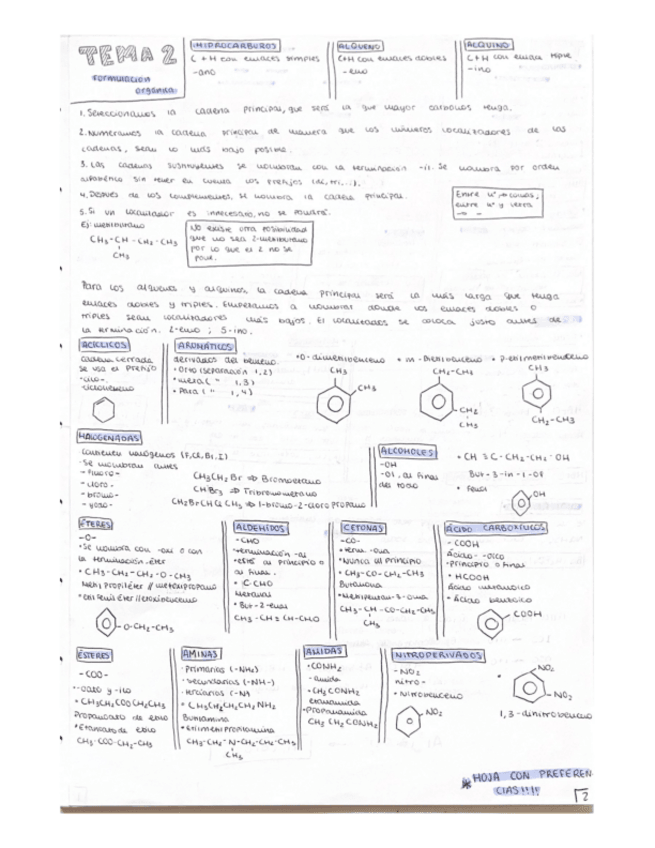 TEMA 2
Formulación
orgánica.
HIDROCARBUROS
C + H con enlaces simples
-ano
ALQUENO
C+H con enlaces dobles
-eno
ALQUINO
C+H con enlace triple
-ino
1. Seleccionamos la cadena principal, que será la que mayor carbonos tenga.
2. Numeramos la cadena principal de manera que los números localizadores de las
cadenas, sean lo más bajo posible.
3. Las cadenas sustituyentes se nombran con la terminación -il. Se nombra por orden
alfabético sin tener en cuenta los prefijos (di, tri...).
4. Después de los complementos, se nombra la cadena principal.
Entre nº → comas,
entre nº y letra
→ -
5. Si un localizador es innecesario, no se pondrá.
Ej: metilbutano
CH₃-CH-CH₂-CH₃
CH₃
No existe otra posibilidad
que no sea 2-metilbutano
por lo que el 2 no se
pone.
Para los alquenos y alquinos, la cadena principal será la más larga que tenga
enlaces dobles y triples. Empezamos a nombrar donde los enlaces dobles o
triples sean localizadores más bajos. El localizador se coloca justo antes de
la terminación. 2-eno ; 5-ino.
ACÍCLICOS
cadena cerrada
se usa el prefijo
-ciclo-.
ciclohexeno
AROMÁTICOS
derivados del benceno.
• Orto (separación 1,2)
• meta ( " 1,3)
• Para ( " 1,4)
• O-dimetilbenceno
CH₃
CH₃
• m-Dietilbenceno
CH₂-CH₃
CH₂
CH₃
• p-etilmetilbenceno
CH₃
CH₂-CH₃
HALOGENADAS
Contienen halógenos (F, Cl, Br, I)
- Se nombran antes
- fluoro-
- cloro-
- bromo-
- yodo-
CH₃CH₂Br ⇒ Bromoetano
CHBr₃ ⇒ Tribromometano
CH₂BrCHClCH₃ ⇒ 1-bromo-2-cloropropano
ALCOHOLES
-OH
-Ol. al final
del todo
• CH≡C-CH₂-CH₂-OH
But-3-in-1-ol
• Fenol
OH
ÉTERES
-O-
• Se nombra con -oxi o con
la terminación -éter
• CH₃-CH₂-CH₂-O-CH₃
Metil propil éter // metoxipropano
• Etil fenil éter // etoxibenceno
O-CH₂-CH₃
ALDEHÍDOS
-CHO
•terminación -al
•está al principio o
al final.
• CHO
Metanal
• But-2-enal
CH₃-CH=CH-CHO
CETONAS
-CO-
•term. -ona
•Nunca al principio
• CH₃-CO-CH₂-CH₃
Butanona
• Metilpentan-3-ona
CH₃-CH-CO-CH₂-CH₃
CH₃
ÁCIDO CARBOXÍLICOS
-COOH
Ácido- -oico
•principio o final
• HCOOH
Ácido metanoico
• Ácido benzoico
COOH
ÉSTERES
-COO-
-oato y -ilo
• CH₃CH₂COOCH₂CH₃
Propanoato de etilo
• Etanoato de etilo
CH₃-COO-CH₂-CH₃
AMINAS
-Primarias (-NH₂)
-secundarias (-NH-)
-terciarias (-N)
• CH₃CH₂CH₂CH₂NH₂
Butilamina
• Etilmetilpropilamina
CH₃-CH₂-N-CH₂-CH₂-CH₃
CH₃
AMIDAS
•CONH₂
-amida
•CH₃CONH₂
etanamida
•Propanamida
CH₃CH₂CONH₂
NITRODERIVADOS
-NO₂
nitro-
• Nitrobenceno
NO₂
NO₂
NO₂
1,3-dinitrobenceno
* HOJA CON PREFEREN-
CIAS!!!!
2